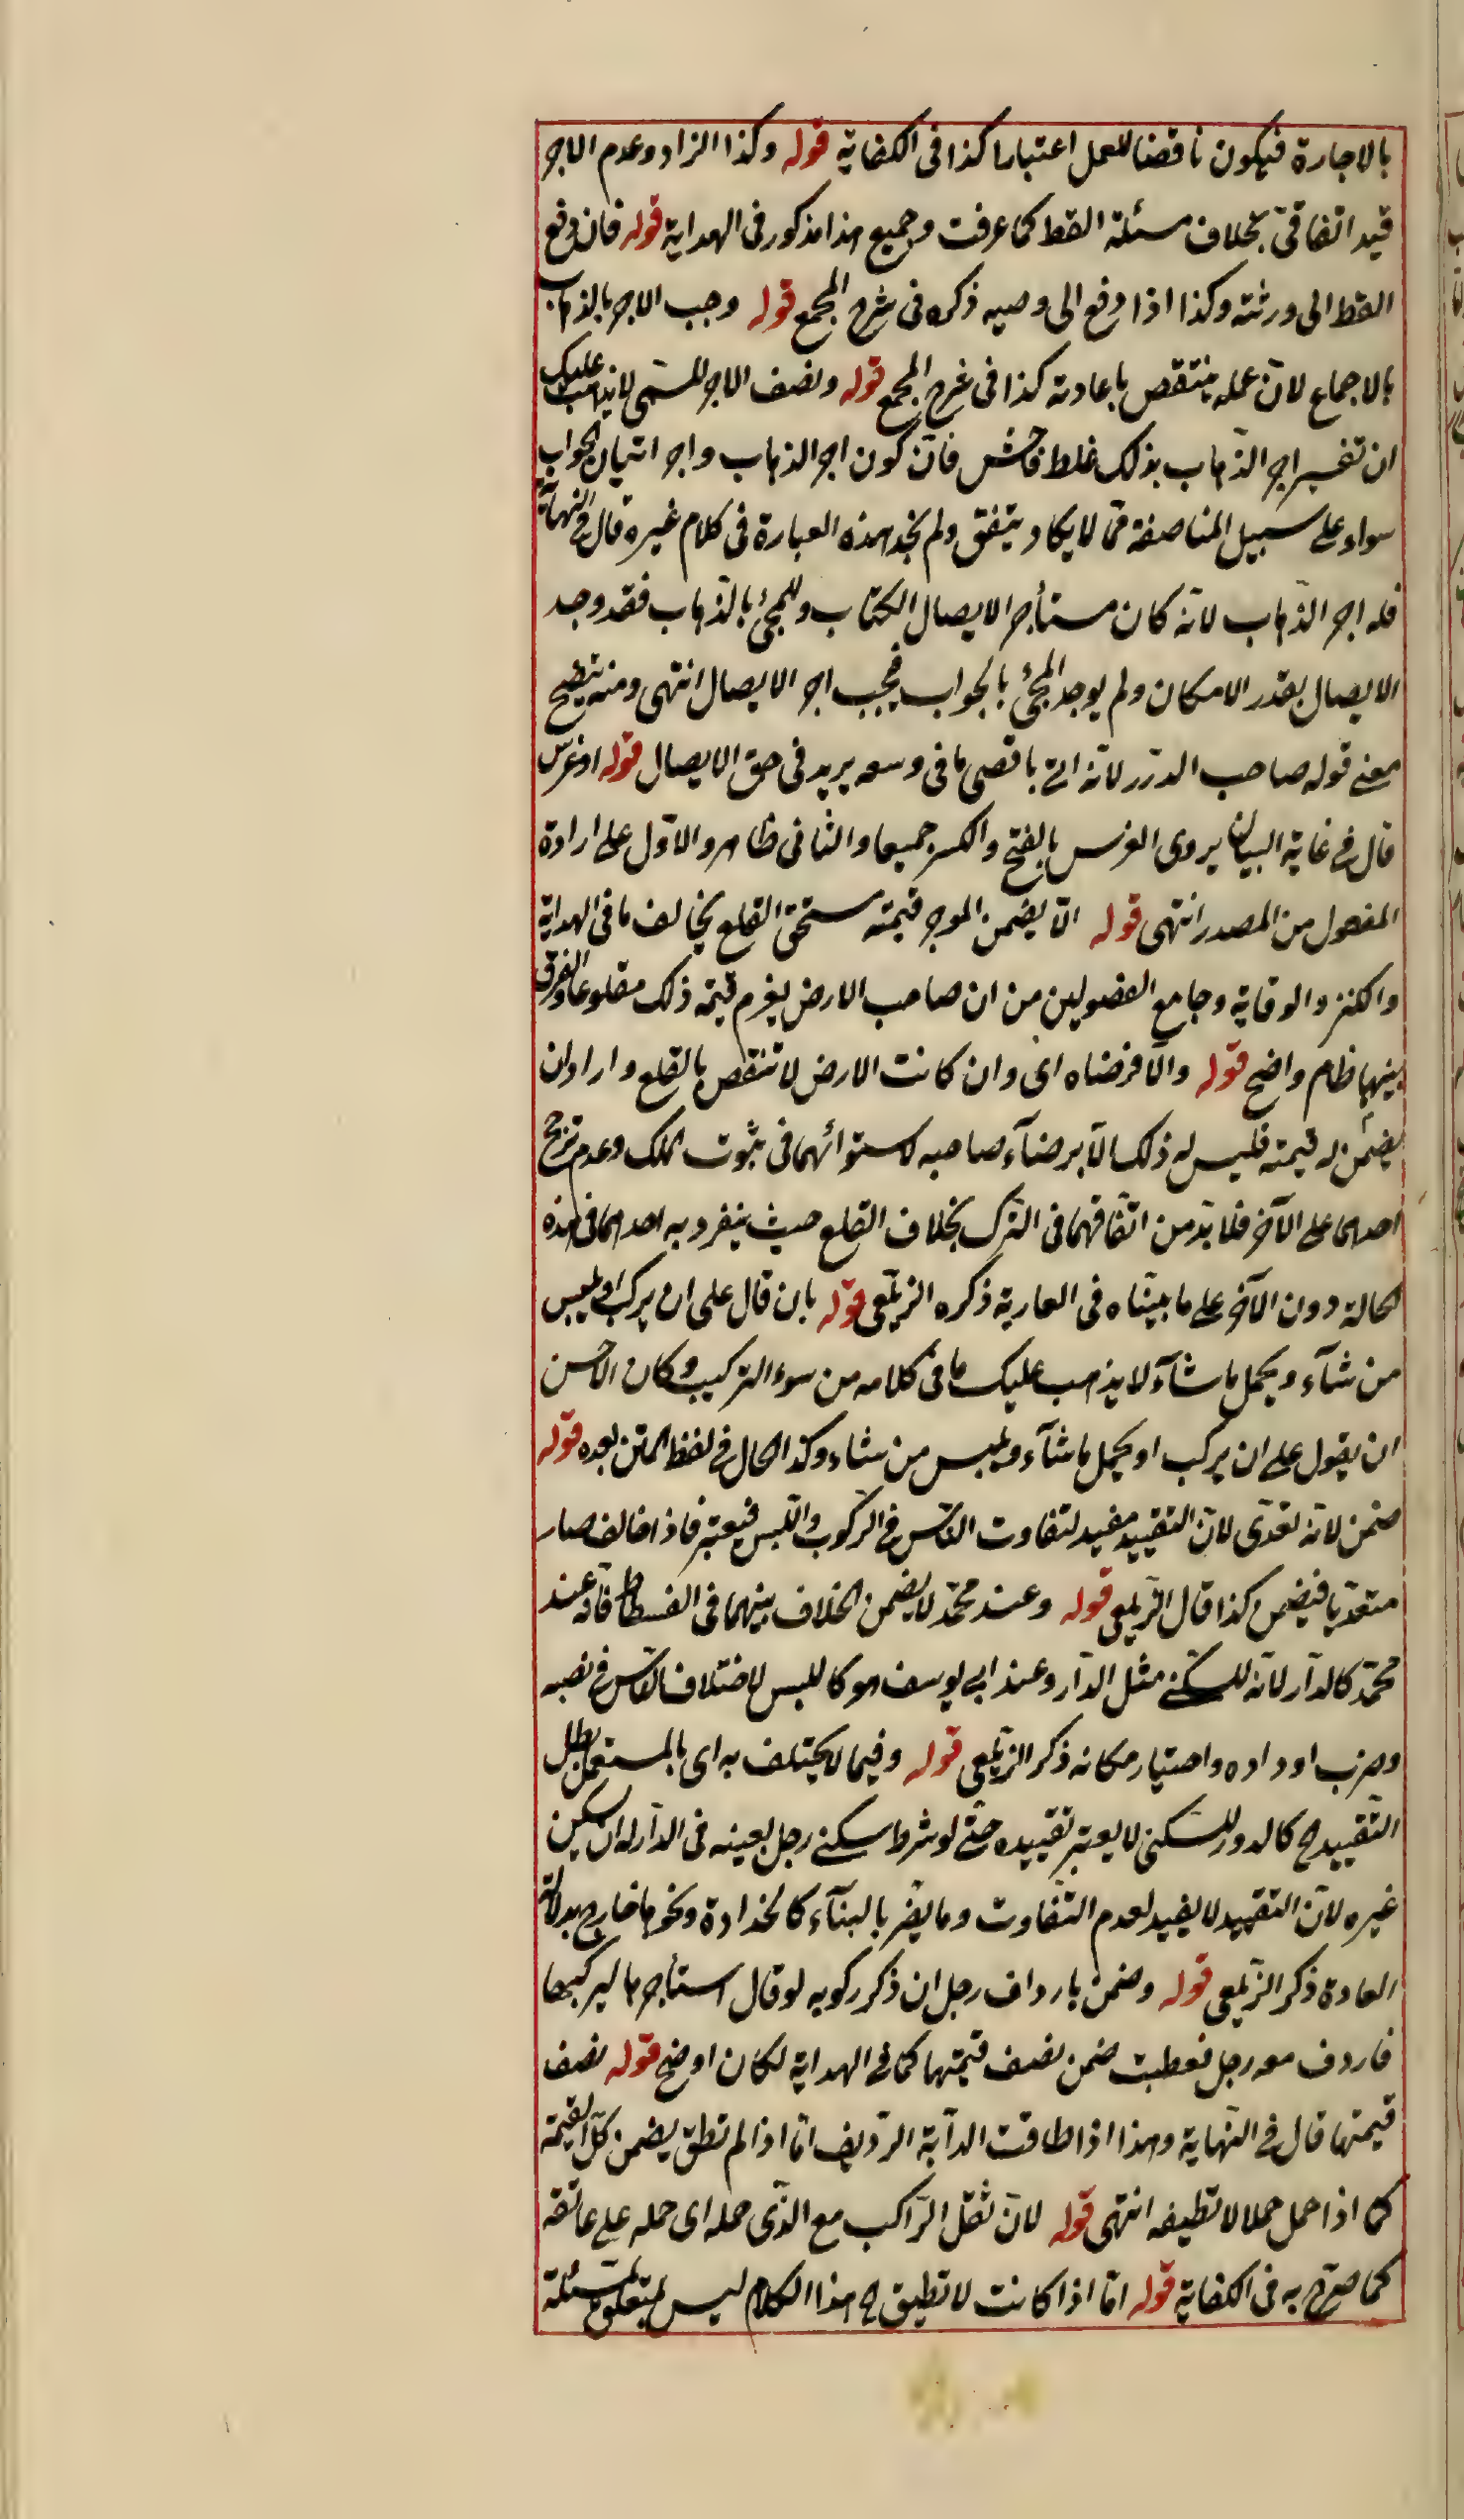 بالاجارة فيكون ناقضا للعمل اعتبارا كذا فى الكفاية قوله وكذا الزاد وعدم الاجر
قيد اتفاقىّ بخلاف مسئلة القط كما عرفت وجميع هذا مذكور فى الهداية قوله فان دفع
القط الى ورثته وكذا اذا دفع الى وصيه ذكره فى شرح المجمع قوله وجب الاجر بالذهاب
بالاجماع لانّ عمله ينتقص باعادته كذا فى شرح المجمع قوله ونصف الاجر للمسمى لا يذهب عليك
ان تفسير اجر الذّهاب بذلك غلط فاحش فانّ كون اجر الذهاب واجر اتيان الجواب
سواء على سبيل المناصفة ممّا لا يكاد يتفق ولم نجد هذه العبارة فى كلام غيره قال فى النهاية
فله اجر الذّهاب لانّه كان مستأجر الايصال الكتاب وللمجئ بالذّهاب فقد وجد
الايصال بقدر الامكان ولم يوجد المجئ بالجواب فيجب اجر الايصال انتهى ومنه يتضح
معنى قوله صاحب الدّرر لانّه اتى باقصى ما فى وسعه يريد فى حق الايصال قوله او غرس
قال فى غاية البيان يروى الغرس بالفتح والكسر جميعا والثانى ظاهر والاوّل على ارادة
المفعول من المصدر انتهى قوله الاّ يضمن الموجر قيمته مستحق القلع يخالف ما فى الهداية
والكنز والوقاية وجامع الفصولين من ان صاحب الارض يغرم قيمة ذلك مقلوعا والفرق
بينهما ظاهر واضح قوله والاّ فرضاه اى وان كانت الارض لا تنقص بالقلع واراد ان
يضمن له قيمته فليس له ذلك الاّ برضاء صاحبه لاستوائهما فى ثبوت الملك وعدم ترجح
احدهما على الآخر فلا بدّ من اتّفاقهما فى الترك بخلاف القلع حيث ينفرد به احدهما فى هذه
الحالة دون الآخر على ما بيّناه فى العارية ذكره الزيلعى قوله بان قال على ان يركب او يلبس
من شاء ويحمل ما شاء لا يذهب عليك ما فى كلامه من سوء التركيب وكان الاحسن
ان يقول على ان يركب او يحمل ما شاء ويلبس من شاء وكذا الحال فى لفظ المتن بعده قوله
ضمن لانّه تعدّى لانّ التقييد مفيد لتفاوت النّاس فى الرّكوب واللّبس فيعتبر فاذا خالف صار
متعدّيا فيضمن كذا قال الزّيلعى قوله وعند محمّد لا يضمن الخلاف بينهما فى الفسطاط فانّه عند
محمّد كالدّار لانّه للسّكنى مثل الدّار وعند ابى يوسف هو كاللبس لاختلاف النّاس فى نصبه
وضرب اوداده واختيار مكانه ذكر الزيلعى قوله وفيما لا يختلف به اى بالمستعمل بطل
التّقييد ح كالدور للسّكنى لا يعتبر تقييده حتّى لو شرط سكنى رجل بعينه فى الدّار له ان يسكن
غيره لانّ التقييد لا يفيد لعدم التّفاوت وما يضرّ بالبنآء كالحدادة ونحوها خارج بدلالة
العادة ذكر الزّيلعى قوله وضمن بارداف رجل ان ذكر ركوبه لو قال استأجرها ليركبها
فاردف معه رجل فعطبت ضمن نصف قيمتها كما فى الهداية لكان اوضح قوله نصف
قيمتها قال فى النّهاية وهذا اذا طاقت الدّابّة الرّديف امّا اذا لم تطق يضمن كلّ القيمة
كما اذا حمل حملا لا تطيقه انتهى قوله لانّ ثقل الرّاكب مع الّذى حمله اى حمله على عاتقه
كما صرّح به فى الكفاية قوله امّا اذا كانت لا تطيق ح هذا الكلام ليس بمتعلق بمسئلة